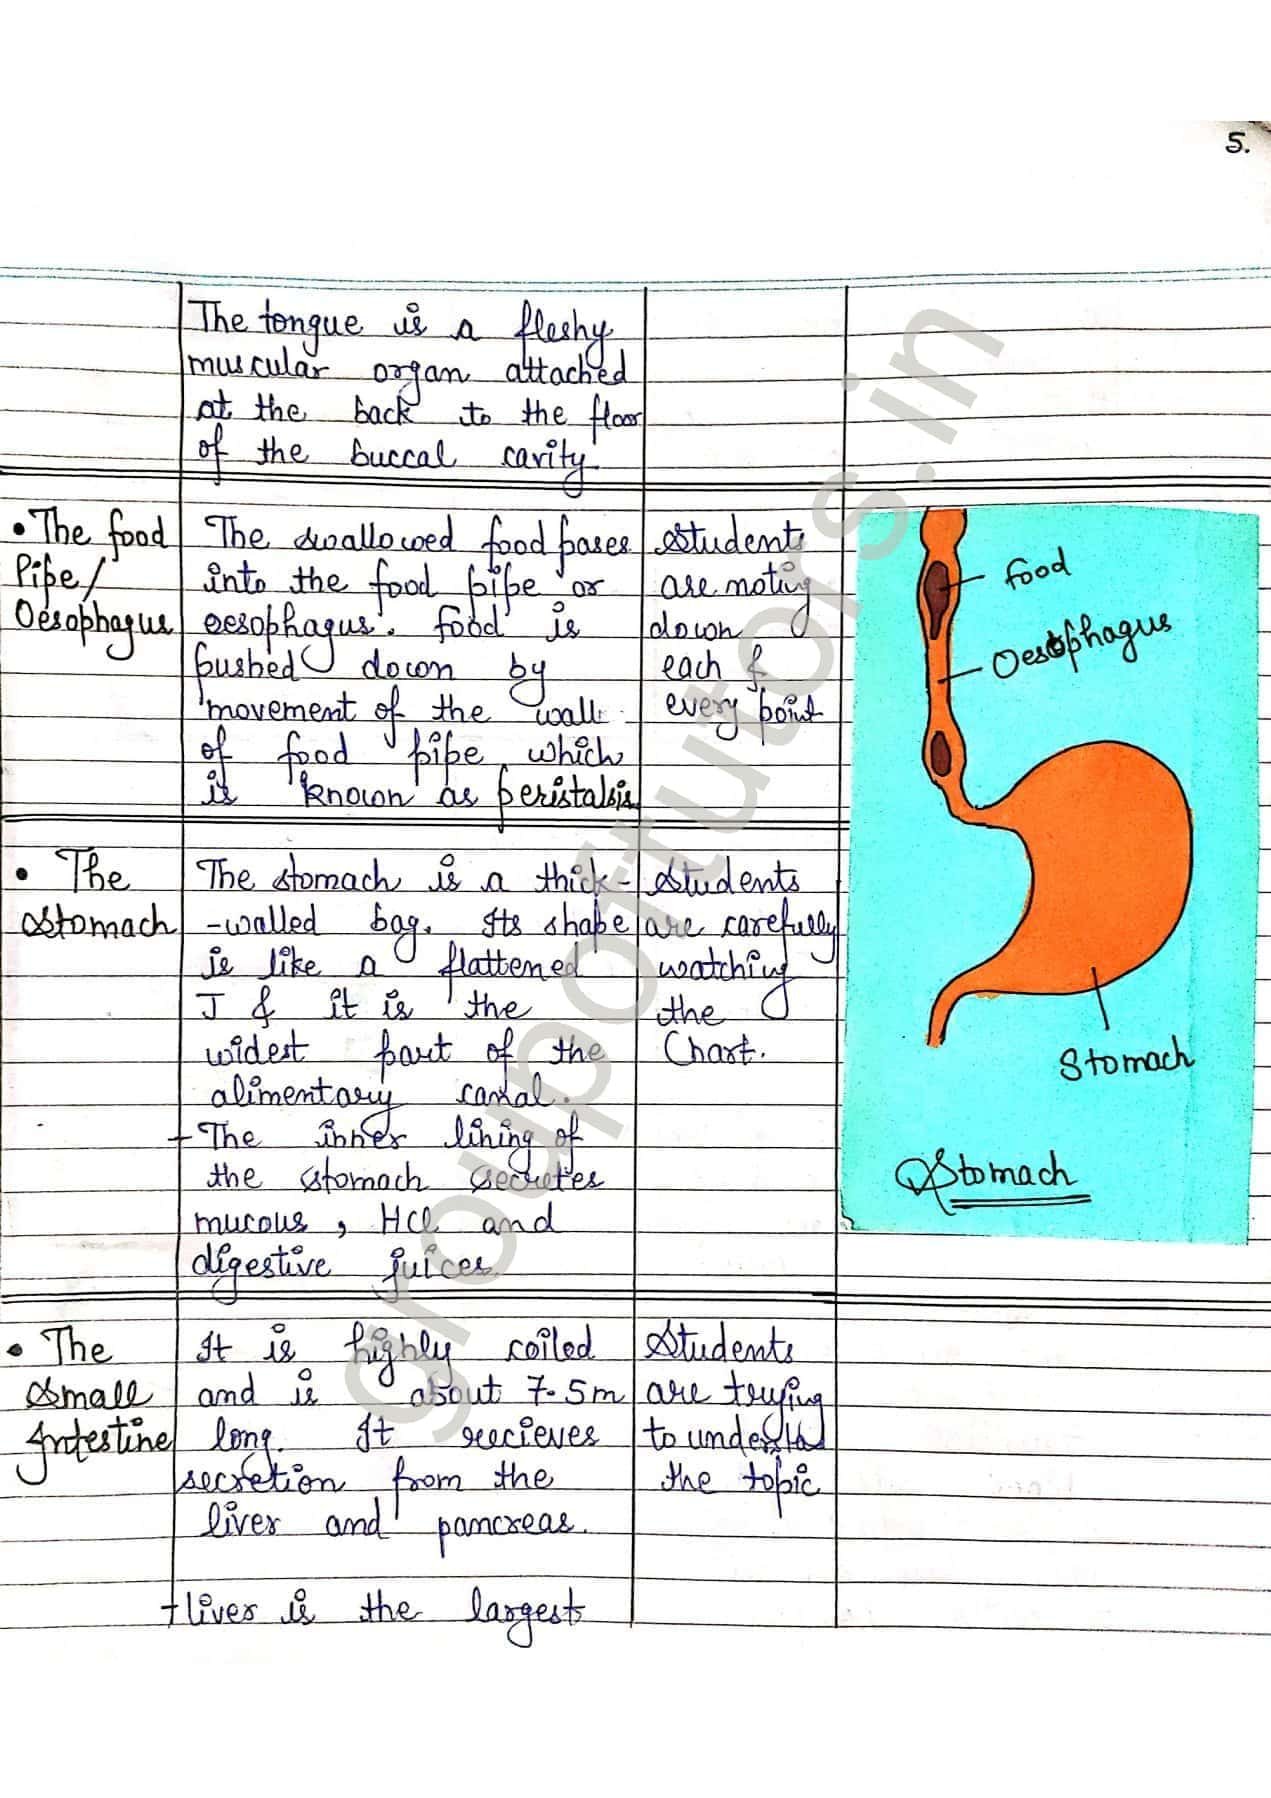 5.
The tongue is a fleshy
muscular organ attached
at the back to the floor
of the buccal cavity.
• The food
Pipe/
Oesophagus
The swallowed food pases
into the food pipe or
oesophagus. Food is
pushed down by
movement of the wall
of food pipe which
is known as peristalsis
Students
are noting
down
each &
every point
food
Oesophagus
Stomach
Stomach
• The
Stomach
The stomach is a thick-
-walled bag. Its shape
is like a flattened
J & it is the
widest part of the
alimentary canal.
- The inner lining of
the stomach secretes
mucous, HCl and
digestive juices.
Students
are carefully
watching
the
Chart.
• The
Small
Intestine
It is highly coiled
and is about 7.5m
long. It recieves
secretion from the
liver and pancreas.
- liver is the largest
Students
are trying
to understand
the topic
groupoftutors.in